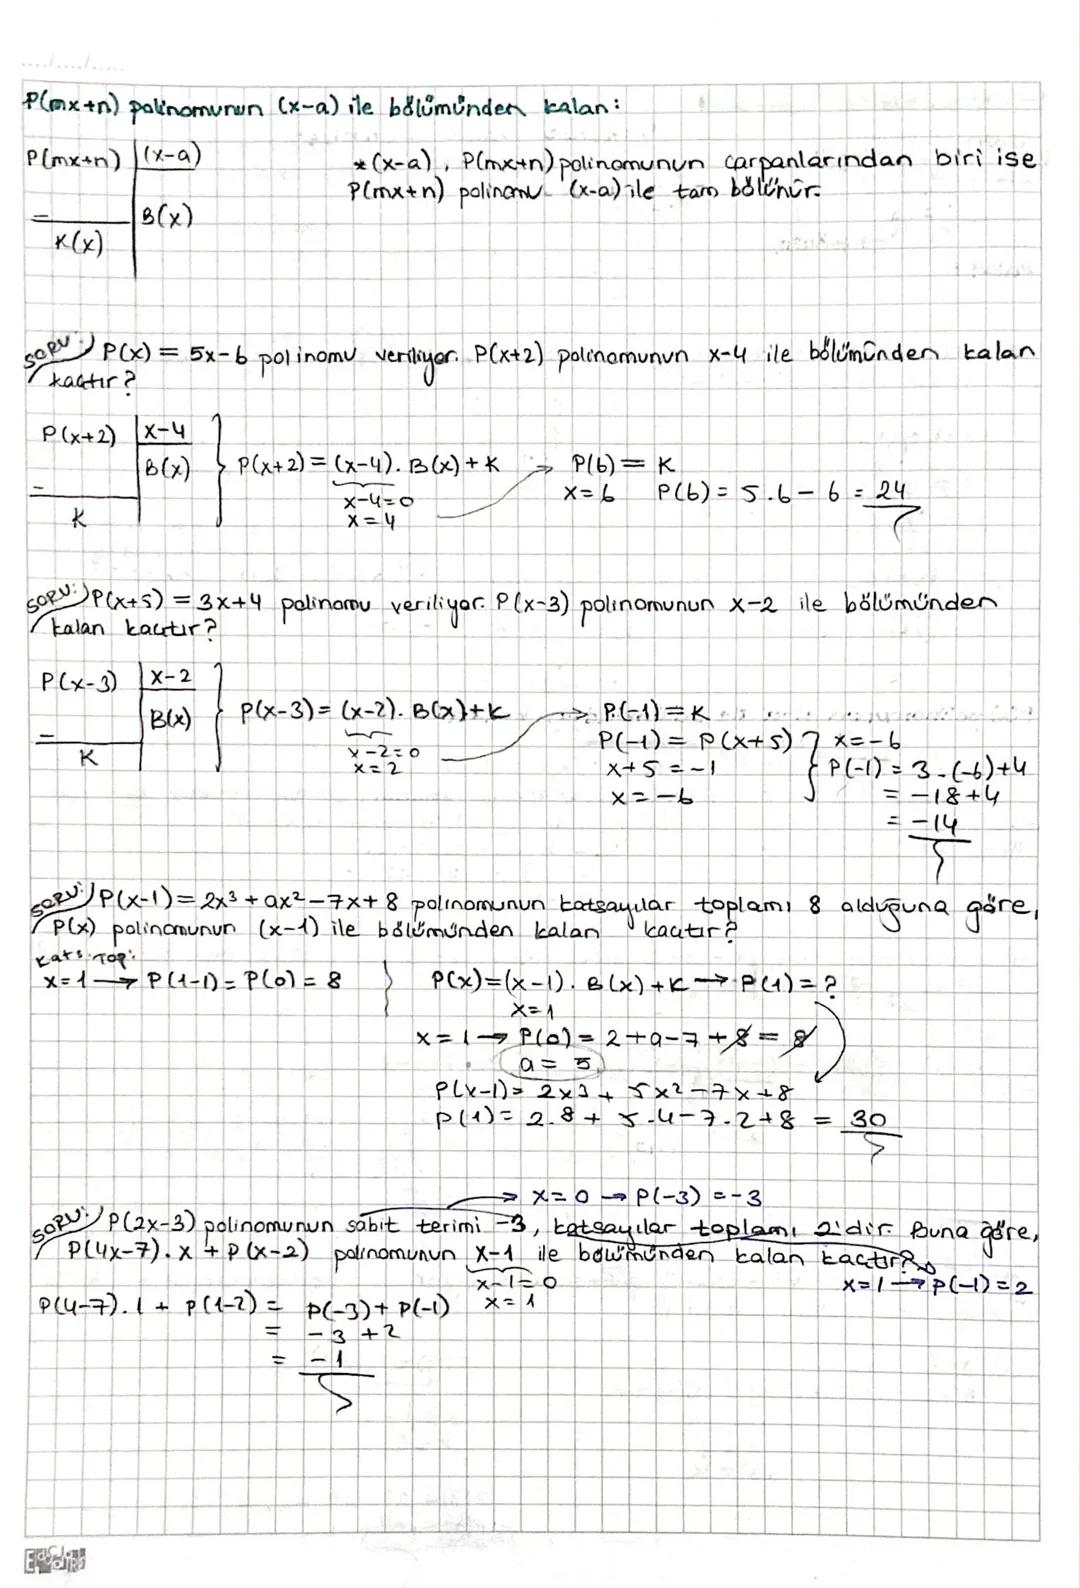 P(mx+n) polinomunun (x-a) ile bölümünden kalan:
P(mx+n) | (x-a)
*(x-a), P(mx+n) polinomunun çarpanlarından biri ise
P(mx+n) polinomu (x-a) ile tam bölünür.
- B(x)
K(x)
SORU: P(x) = 5x-6 polinomu veriliyor. P(x+2) polinomunun x-4 ile bölümünden kalan
kaçtır?
P(x+2) | x-4
- B(x) } P(x+2) = (x-4). B(x) + K → P(6) = K
x-4=0 x=6 P(6) = 5.6 - 6 = 24
K x=4
SORU: P(x+5) = 3x+4 polinomu veriliyor. P(x-3) polinomunun x-2 ile bölümünden
kalan kaçtır?
P(x-3) | x-2
- B(x) } P(x-3) = (x-2). B(x)+K → P(-1) = K
K x-2=0 P(-1) = P(x+5) } x=-6
x=2 x+5 = -1 P(-1) = 3.(-6)+4
x = -6 = -18+4
= -14
SORU: P(x-1) = 2x³ + ax² - 7x + 8 polinomunun katsayılar toplamı 8 olduğuna göre,
P(x) polinomunun (x-1) ile bölümünden kalan kaçtır?
Kats. Top:
x=1 → P(1-1) = P(0) = 8 } P(x)=(x-1). B(x)+K → P(1) = ?
x=1
x=1 → P(0) = 2+a-7+8 = 8
a = 5
P(x-1) = 2x3 + 5x²-7x+8
P(1) = 2.8 + 5.4-7.2+8 = 30
→ x=0 → P(-3) = -3
SORU: P(2x-3) polinomunun sabit terimi -3, katsayılar toplamı 2'dir. Buna göre,
P(4x-7).x + P(x-2) polinomunun x-1 ile bölümünden kalan kaçtır?
x-1=0 x=1 → P(-1)=2
P(4-7).1 + P(1-2) = P(-3)+P(-1) x=1
= -3+2
= -1